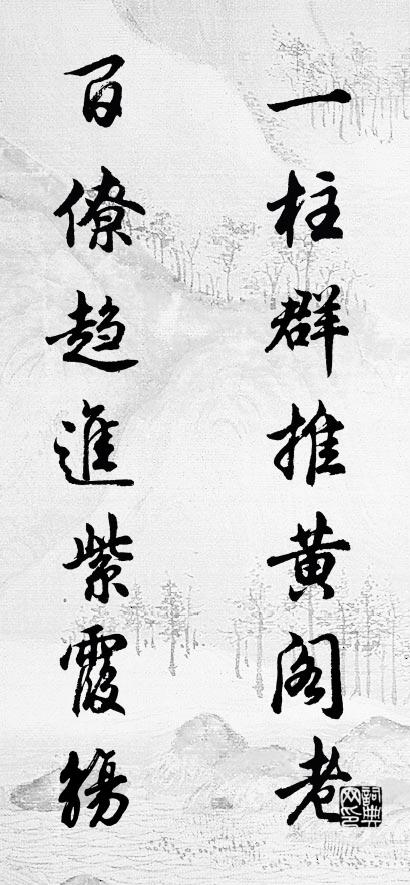 一柱群推黄阁老
百僚趋進紫霞觞
词典网印